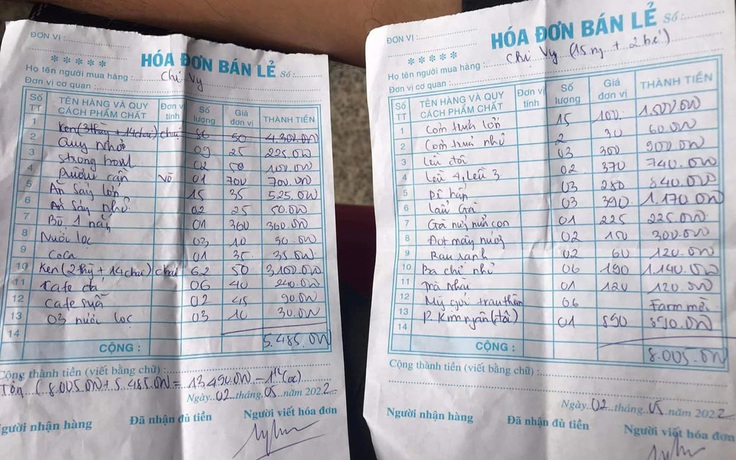 ĐƠN VỊ :
HÓA ĐƠN BÁN LẺ Số :
Họ tên người mua hàng : Chị Vy
Đơn vị cơ quan :
Số TT TÊN HÀNG VÀ QUY CÁCH PHẨM CHẤT Đơn vị tính Số lượng Giá đơn vị THÀNH TIỀN
1 Ken (3 thùng + 14 chai) chai 86 50 4.300.000
2 Quy nhơn 09 25 225.000
3 Strong bowl 02 50 100.000
4 cần Vò 01 700 700.000
5 Ăn sáng lớn 15 35 525.000
6 Ăn sáng nhỏ 02 25 50.000
7 Bò 1 nắng 01 300 300.000
8 Nước lọc 03 10 30.000
9 coca 01 35 35.000
10 Ken (2 thùg + 14 chai) chai 62 50 3.100.000
11 Cafe đá 06 40 240.000
12 Cafe sữa 02 45 90.000
13 03 nước lọc 03 10 30.000
14
CỘNG : 5.485.000
Cộng thành tiền (viết bằng chữ) :
(8.005.000 + 5.485.000 = 13.490.000
Ngày 02 tháng 05 năm 2022
Người nhận hàng Đã nhận đủ tiền Người viết hóa đơn
ĐƠN VỊ :
HÓA ĐƠN BÁN LẺ Số :
Họ tên người mua hàng : Chị Vy (15 ng + 2 bé)
Đơn vị cơ quan :
Số TT TÊN HÀNG VÀ QUY CÁCH PHẨM CHẤT Đơn vị tính Số lượng Giá đơn vị THÀNH TIỀN
1 Cơm lớn 15 100 1.500.000
2 Cơm nhỏ 2 30 60.000
3 Lều đôi 03 300 900.000
4 Lều 4, Lều 3 02 370 740.000
5 hấp 03 280 840.000
6 Lẩu Gà 03 390 1.170.000
7 Gà con 01 225 225.000
8 02 150 300.000
9 Rau sạch 02 60 120.000
10 Ba chỉ nhỏ 06 190 1.140.000
11 Trà 01 120 120.000
12 Mỳ gói + 06 Farm mời
13 P. 01 890 890.000
14
CỘNG : 8.005.000
Cộng thành tiền (viết bằng chữ) :
Ngày 02 tháng 05 năm 2022
Người nhận hàng Đã nhận đủ tiền Người viết hóa đơn